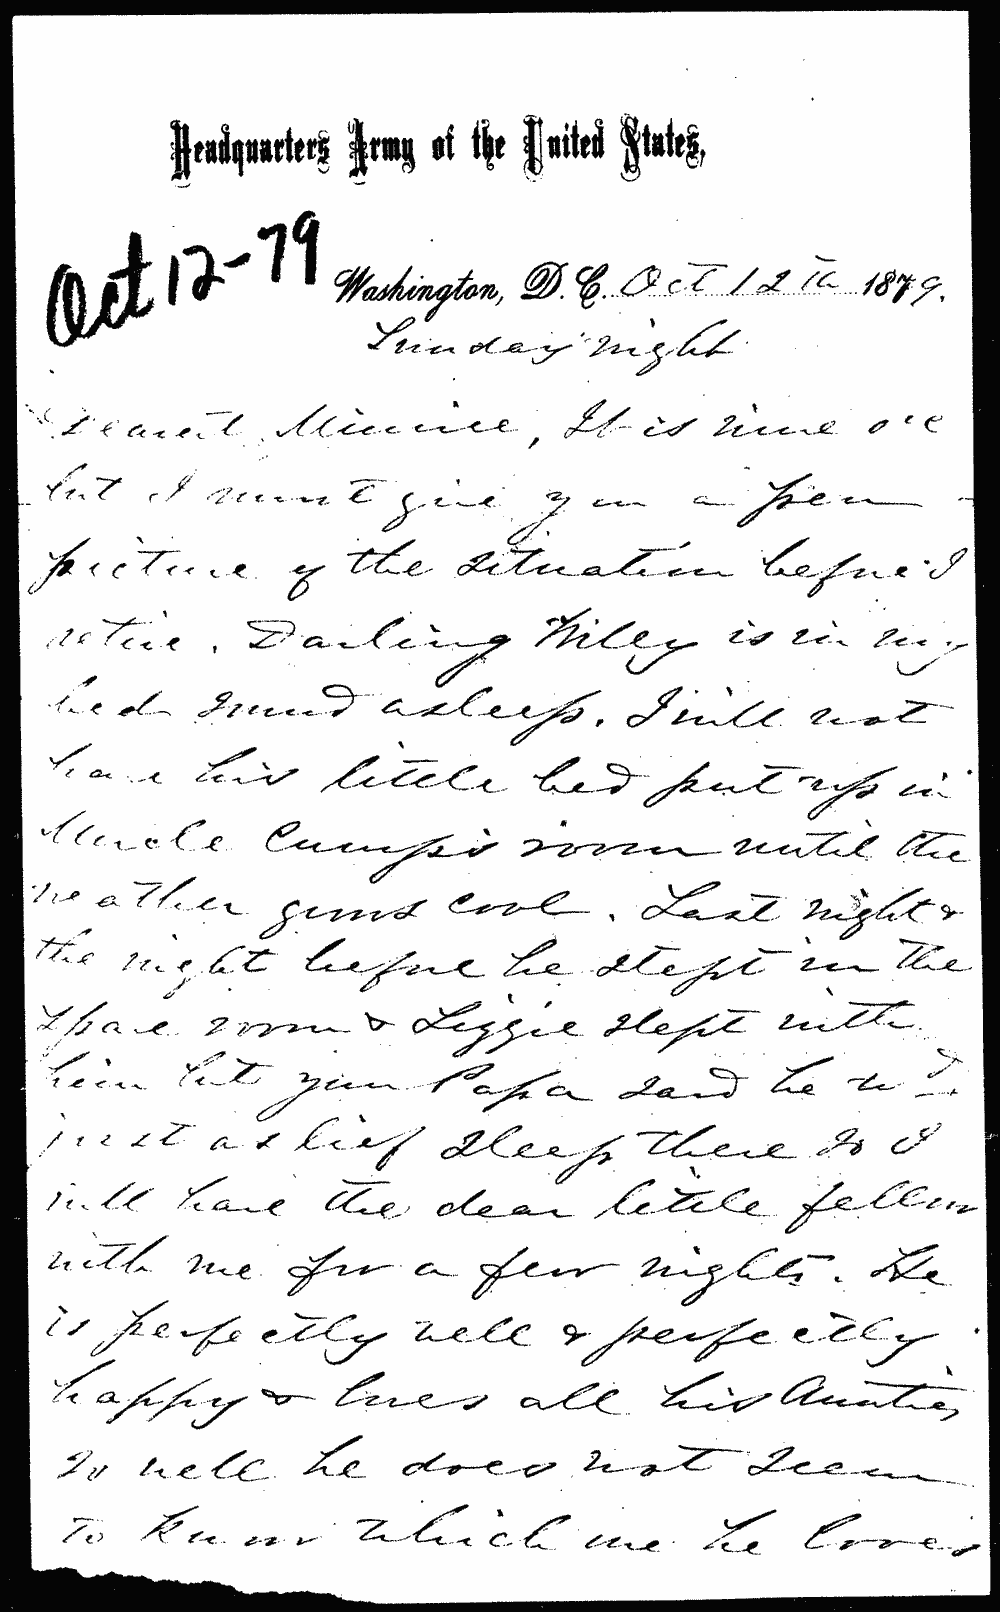 Headquarters Army of the United States,
Oct 12-79
Washington, D.C. Oct 12th 1879.
Sunday night
Dearest Minnie, It is nine oc
but I must give you a pen
picture of the situation before I
retire. Darling Willey is in my
bed sound asleep. I will not
have his little bed put up in
Uncle Cump's room until the
weather grows cool. Last night &
the night before he slept in the
spare room & Lizzie slept with
him but your Papa said he wd
just as lief sleep there so I
will have the dear little fellow
with me for a few nights. He
is perfectly well & perfectly
happy & loves all his Aunties
so well he does not seem
to know which one he loves